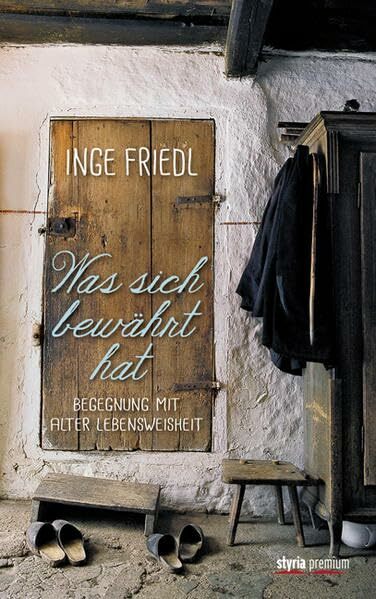 INGE FRIEDL
Was sich
bewährt
hat
BEGEGNUNG MIT
ALTER LEBENSWEISHEIT
styria premium